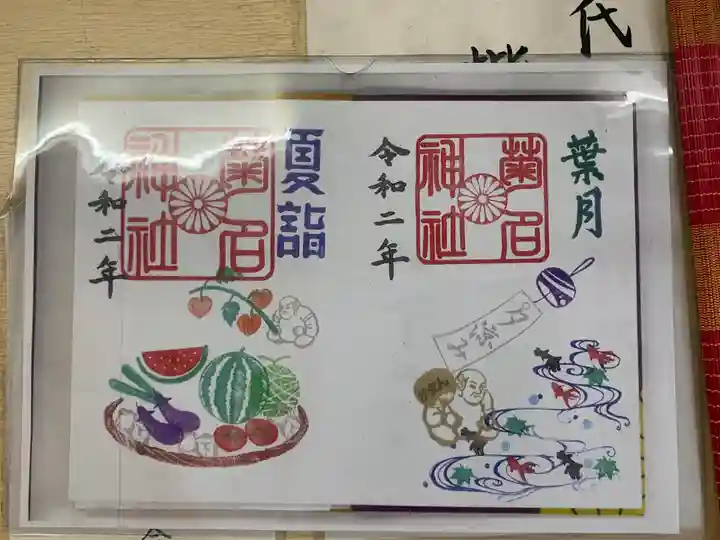 代
葉月
菊名
神社
令和二年
夕涼み
夏詣
菊名
神社
令和二年